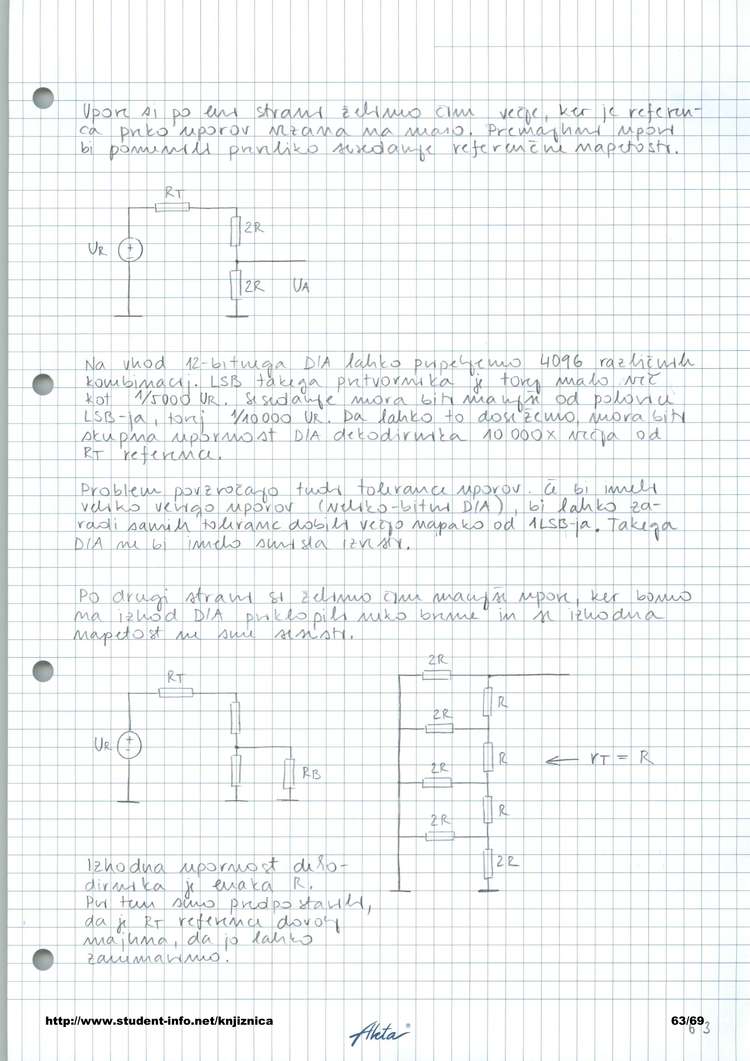 Upore si po eni strani želimo čim večje, ker je referen-
ca preko uporov vezana na maso. Premajhni upori
bi pomenili preveliko sesedanje referenčne napetosti.
RT
2R
UR
2R UA
Na vhod 12-bitnega D/A lahko pripeljemo 4096 različnih
kombinacij. LSB takega pretvornika je torej malo več
kot 1/5000 UR. Sesedanje mora biti manjše od polovice
LSB-ja, torej 1/10000 UR. Da lahko to dosežemo, mora biti
skupna upornost D/A dekodirnika 10 000x večja od
RT reference.
Problem povzročajo tudi tolerance uporov. Če bi imeli
veliko verigo uporov (veliko-bitni D/A), bi lahko za-
radi samih toleranc dobili večjo napako od 1LSB-ja. Takega
D/A ne bi imelo smisla izvesti.
Po drugi strani si želimo čim manjše upore, ker bomo
na izhod D/A priklopili neko breme in se izhodna
napetost ne sme sesesti.
RT
UR
RB
2R
R
2R
R
2R
R
2R
2R
← rT = R
Izhodna upornost deko-
dirnika je enaka R.
Pri tem smo predpostavili,
da je RT reference dovolj
majhna, da jo lahko
zanemarimo.
http://www.student-info.net/knjiznica
Aleta
63/69
63